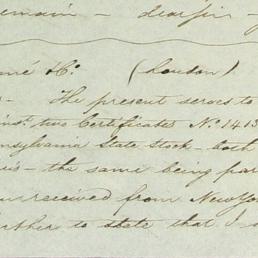 remain — dear sir —
& Co. (London)
— The present serves to
inst. two Certificates No. 1413
nsylvania State Stock — both
— the same being par
received from New Yo
urther to state that I